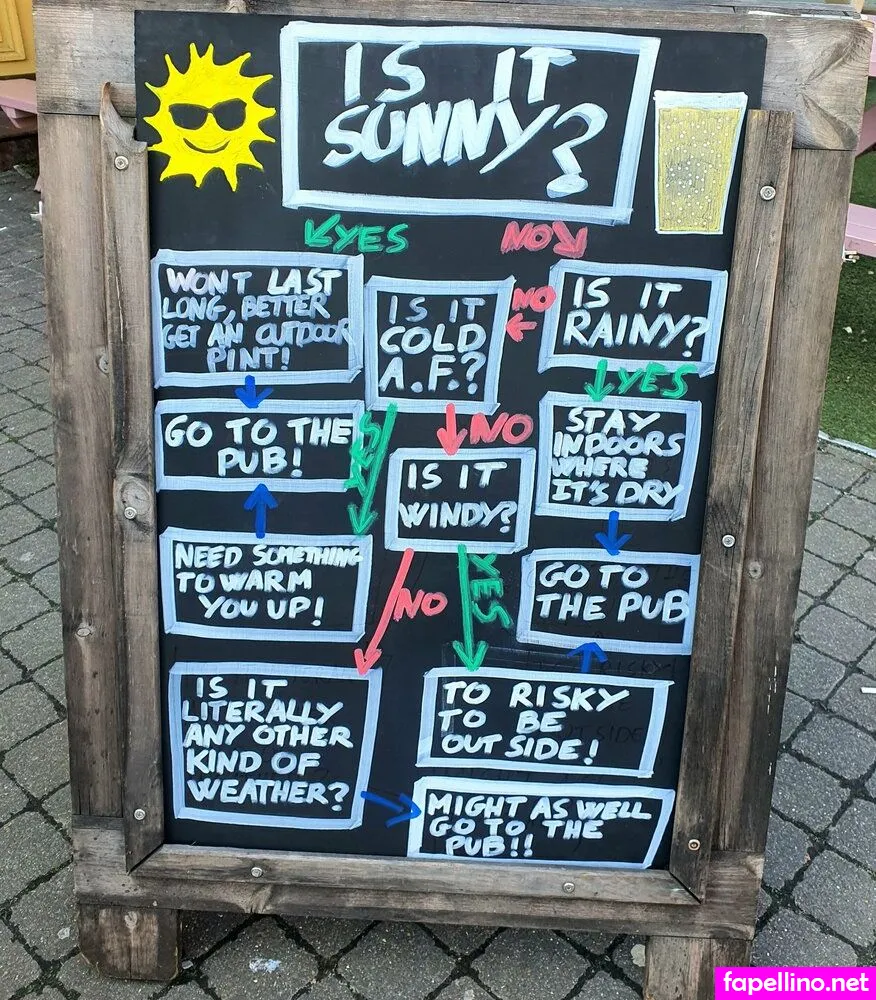 IS IT
SUNNY?
YES
NO
WONT LAST
LONG, BETTER
GET AN OUTDOOR
PINT!
IS IT
COLD
A.F.?
NO
IS IT
RAINY?
YES
GO TO THE
PUB!
YES
NO
STAY
INDOORS
WHERE
IT'S DRY
IS IT
WINDY?
NEED SOMETHING
TO WARM
YOU UP!
NO
YES
GO TO
THE PUB
IS IT
LITERALLY
ANY OTHER
KIND OF
WEATHER?
TO RISKY
TO BE
OUT SIDE!
MIGHT AS WELL
GO TO THE
PUB!!
fapellino.net